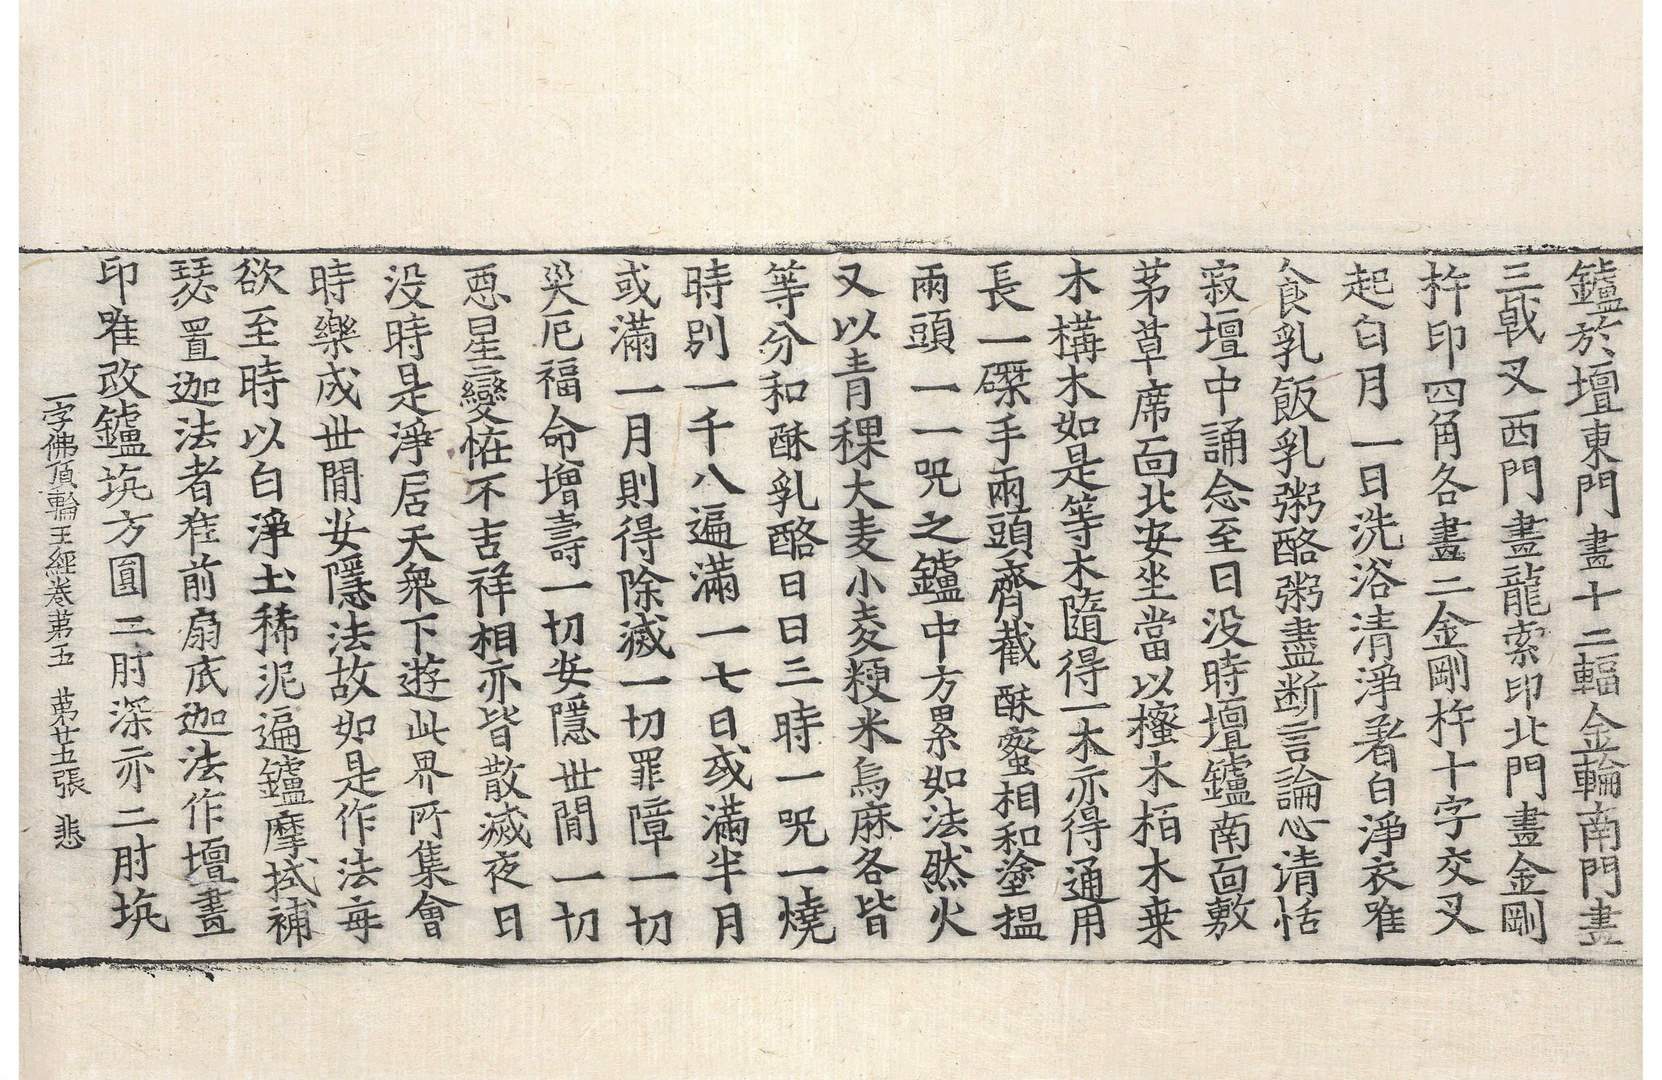 鑪於壇東門畫十二輻金輪南門畫
三戟叉西門畫龍索印北門畫金剛
杵印四角各畫二金剛杵十字交叉
起白月一日洗浴清淨著白淨衣唯
食乳飯乳粥酪粥盡断言論心清恬
寂壇中誦念至日没時壇鑪南面敷
茅草席面北安坐當以櫁木栢木乗
木構木如是等木隨得一木亦得通用
長一磔手兩頭齊截酥蜜相和塗揾
兩頭一一呪之鑪中方累如法然火
又以青稞大麦小麦粳米烏麻各皆
等分和酥乳酪日日三時一呪一燒
時別一千八遍滿一七日或滿半月
或滿一月則得除滅一切罪障一切
災厄福命增壽一切安隱世間一切
惡星變恠不吉祥相亦皆散滅夜日
没時是淨居天衆下遊此界所集會
時樂成世間安隱法故如是作法每
欲至時以白淨土稀泥遍鑪摩拭補
瑟置迦法者准前扇底迦法作壇畫
印唯改鑪坑方圓二肘深亦二肘坑
一字佛頂輪王經卷第五　第廿五張　悲